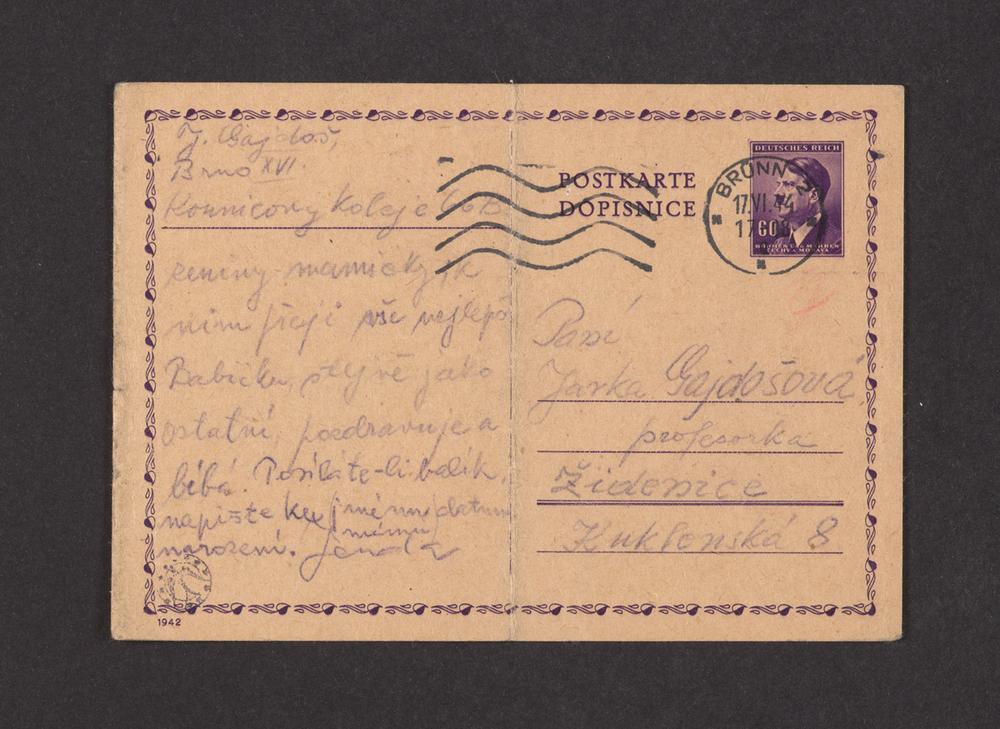 J. Gajdoš,
Brno XVI.
Kounicovy koleje
zeniny maminky
nim přeji vše nejlepš
Babičku, stejně jako
ostatní, pozdravuje a
líbá. Posíláte-li balík,
napište ke jménu datum
mému
narození. Jenda
1942
POSTKARTE
DOPISNICE
DEUTSCHES REICH
60
BÖHMEN UND MÄHREN
ČECHY A MORAVA
BRÜNN 2
17.VI.44
17
Paní
Jarka Gajdošová
profesorka
Židenice
Kuklenská 8